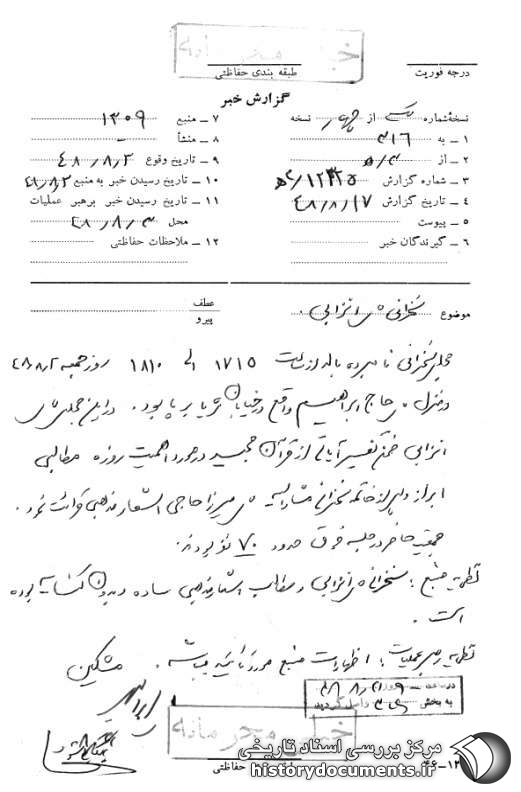 خیلی محرمانه
درجه فوریت
طبقه بندی حفاظتی
گزارش خبر
نسخهٔ شماره یک از چهار نسخه
۱ ـ به ۳۱۶
۲ ـ از
۳ ـ شماره گزارش
۴ ـ تاریخ گزارش ۴۸/۸/۱۷
۵ ـ پیوست
۶ ـ گیرندگان خبر
۷ ـ منبع ۱۳۰۹
۸ ـ منشأ
۹ ـ تاریخ وقوع ۴۸/۸/۲
۱۰ ـ تاریخ رسیدن خبر به منبع ۴۸/۸/۲
۱۱ ـ تاریخ رسیدن خبر برهبر عملیات
محل ۴۸/۸/۳
۱۲ ـ ملاحظات حفاظتی
موضوع سخنرانی انزابی.
عطف
پیرو
مجلس سخنرانی نامبرده بالا از ساعت ۱۷۱۵ الی ۱۸۱۰ روز جمعه ۴۸/۸/۲
در منزل حاج ابراهیم واقع در خیابان ثریا برپا بود. در این مجلس
انزابی ضمن تفسیر آیاتی از قرآن مجید در مورد اهمیت روزه مطالبی
ابراز و پس از خاتمه سخنرانی مشارالیه میرزا حاجی اشعار مذهبی قرائت نمود.
جمعیت حاضر در جلسه فوق حدود ۷۰ نفر بودند.
نظریه منبع: سخنرانی انزابی و مطالب اشعار مذهبی ساده و بدون کنایه بوده
است.
نظریه رهبر عملیات: اظهارات منبع مورد تأیید میباشد. مشکین
خیلی محرمانه
طبقه بندی حفاظتی
مرکز بررسی اسناد تاریخی
historydocuments.ir